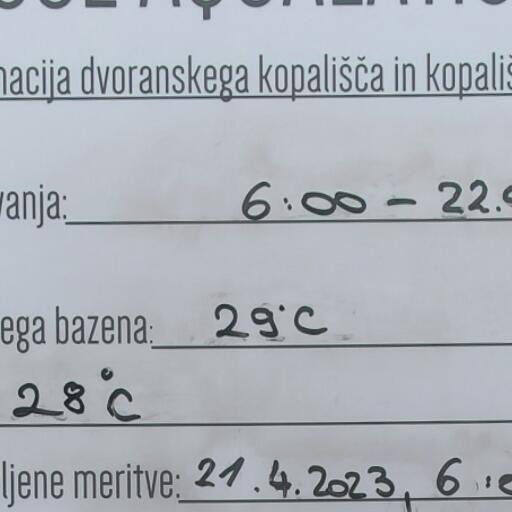 macija dvoranskega kopališča in kopališ
vanja: 6:00 - 22.
ega bazena: 29°C
28°C
ljene meritve: 21.4.2023, 6: